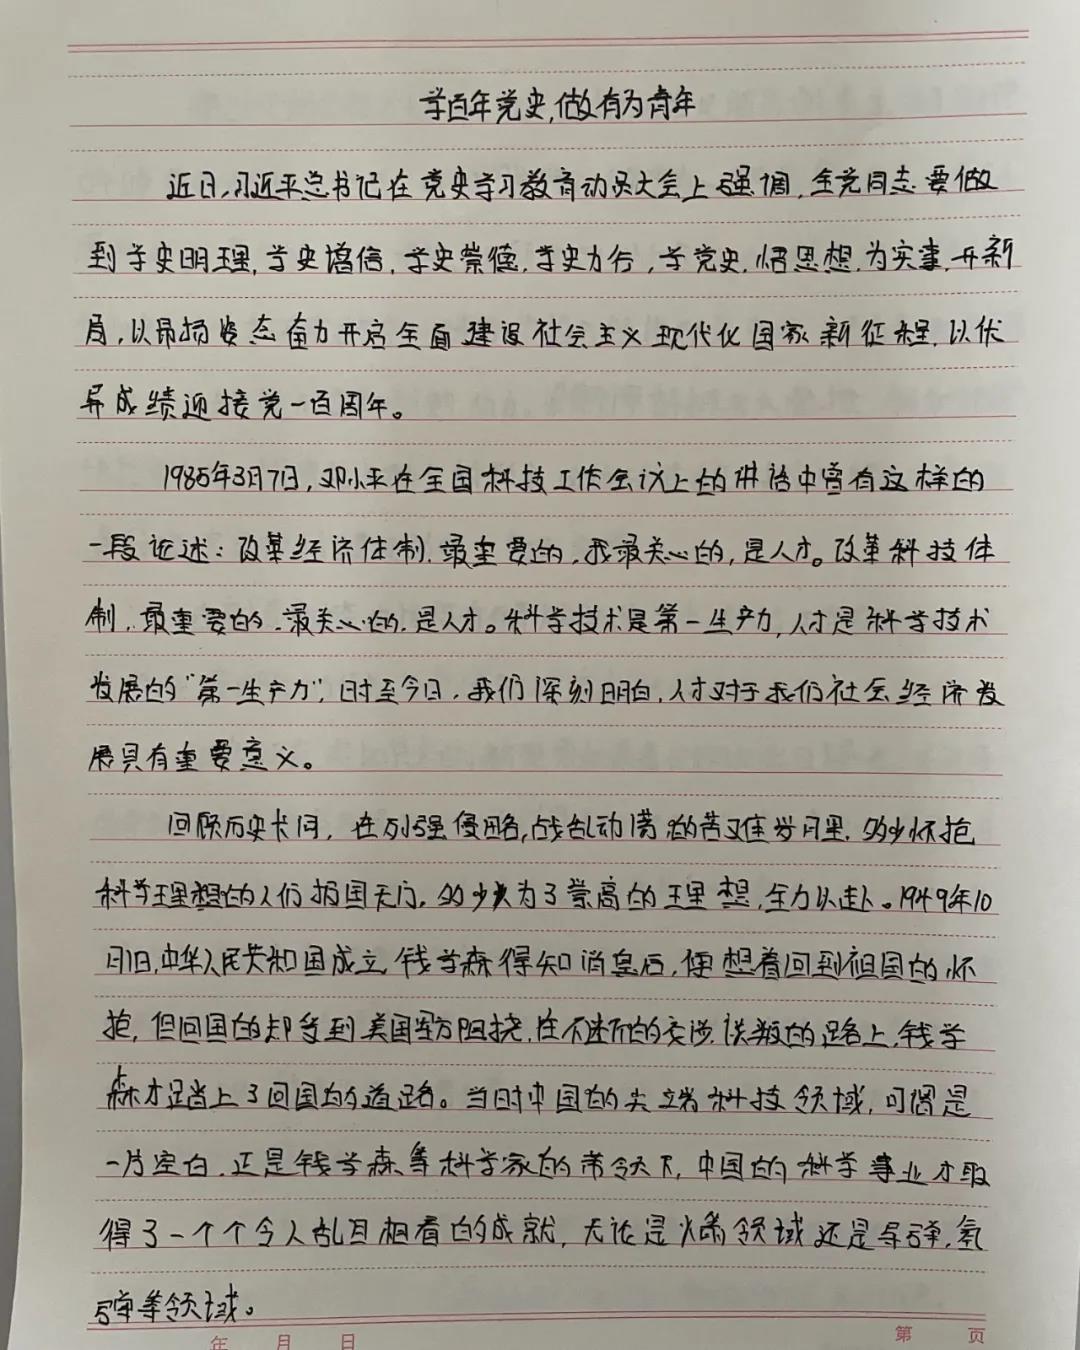 学百年党史,做有为青年
近日,习近平总书记在党史学习教育动员大会上强调,全党同志要做
到学史明理,学史增信,学史崇德,学史力行,学党史,悟思想,为实事,开新
局,以昂扬姿态奋力开启全面建设社会主义现代化国家新征程,以优
异成绩迎接党一百周年。
1985年3月7日,邓小平在全国科技工作会议上的讲话中曾有这样的
一段论述:改革经济体制,最重要的,我最关心的,是人才。改革科技体
制,最重要的,最关心的,是人才。科学技术是第一生产力,人才是科学技术
发展的“第一生产力”,时至今日,我们深刻明白,人才对于我们社会经济发
展具有重要意义。
回顾历史长河,在列强侵略,战乱动荡的苦难岁月里,多少怀抱
科学理想的人们报国无门,多少人为了崇高的理想,全力以赴。1949年10
月1日,中华人民共和国成立,钱学森得知消息后,便想着回到祖国的怀
抱,但回国的却等到美国军方阻挠,在不断的交涉,谈判的路上,钱学
森才踏上了回国的道路。当时中国的尖端科技领域,可谓是
一片空白,正是钱学森等科学家的带领下,中国的科学事业才取
得了一个个令人刮目相看的成就,无论是火箭领域还是导弹,氢
弹等领域。
年 月 日
第 页